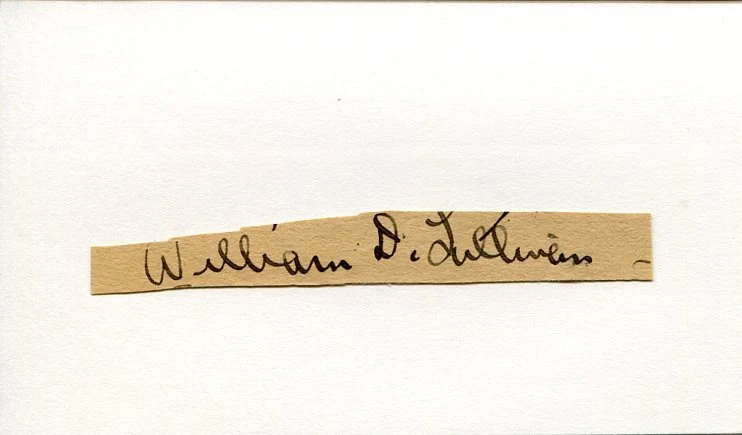 William D. Sullivan -